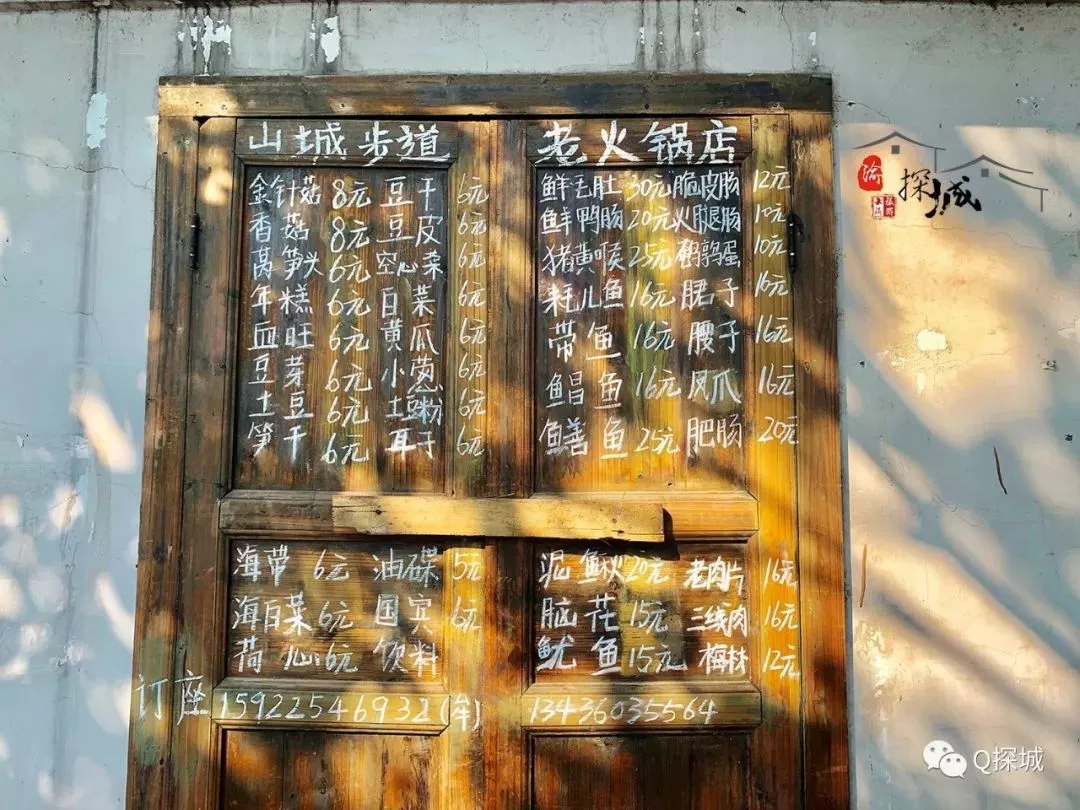 山城步道 老火锅店
金针菇 8元 豆干 6元
香菇 8元 豆皮 6元
莴笋头 6元 空心菜 6元
年糕 6元 白菜 6元
血旺 6元 黄瓜 6元
豆芽 6元 小葱 6元
土豆 6元 土豆粉 6元
笋干 6元 耳子 6元
鲜毛肚 30元 脆皮肠 12元
鲜鸭肠 20元 火腿肠 10元
猪黄喉 25元 鹌鹑蛋 10元
耗儿鱼 16元 郡子 16元
带鱼 16元 腰子 16元
鲳鱼 16元 凤爪 16元
鳝鱼 25元 肥肠 20元
海带 6元 油碟 5元
海白菜 6元 国宾 6元
荷心 6元 饮料
泥鳅 20元 老肉片 16元
脑花 15元 三线肉 16元
鱿鱼 15元 梅林 12元
订座 15922546932(牟) 13436035564
渝
探城
Q探城